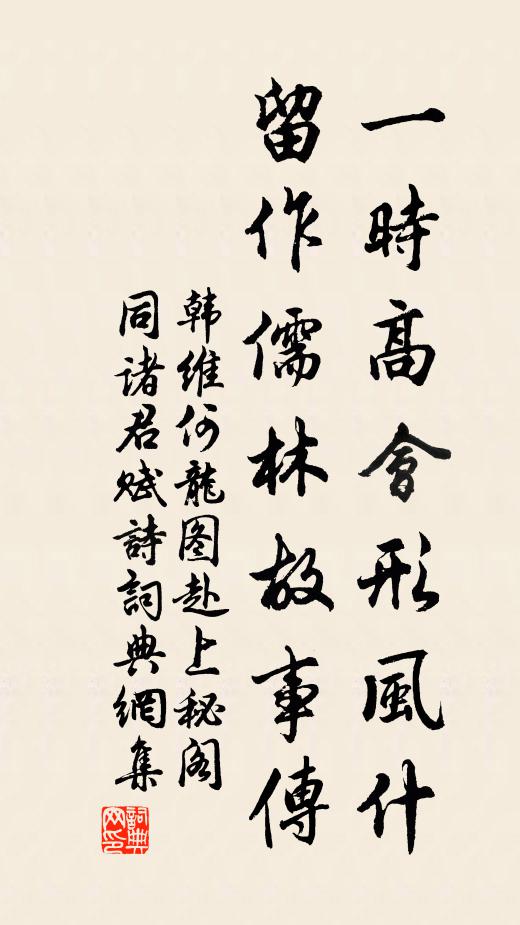 一時高會形風什
留作儒林故事傳
韩維何龍图赴上秘阁
同诸君赋詩詞典網集
詞典网印